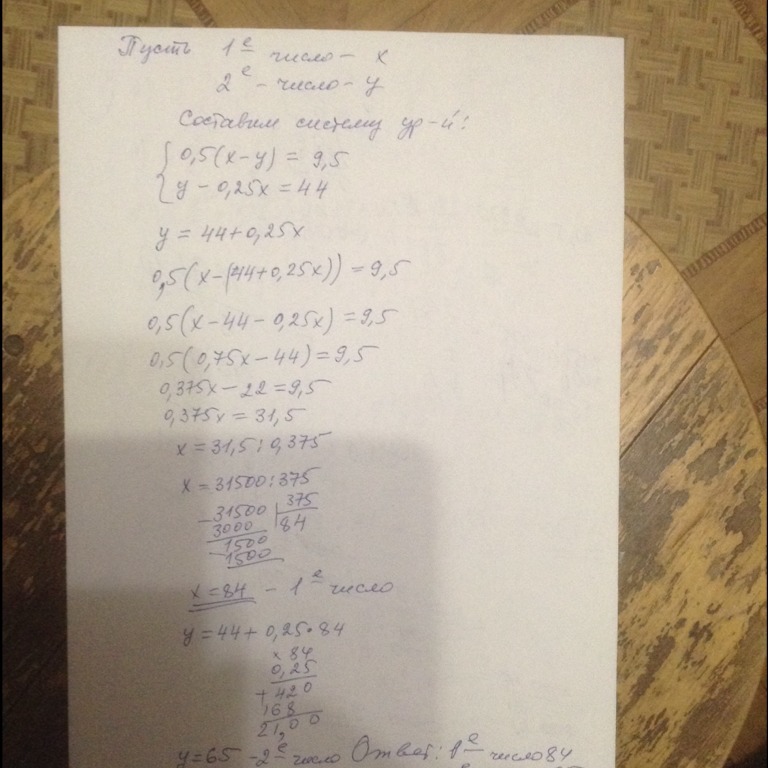 Пусть 1е число – x
2е – число – y
Составим систему ур-й:
0,5(x-y) = 9,5
y - 0,25x = 44
y = 44+0,25x
0,5(x-(44+0,25x)) = 9,5
0,5(x-44-0,25x) = 9,5
0,5(0,75x-44) = 9,5
0,375x - 22 = 9,5
0,375x = 31,5
x = 31,5 : 0,375
x = 31500 : 375
-31500 | 375
3000 | 84
-1500
1500
x = 84 - 1е число
y = 44 + 0,25 • 84
x 84
0,25
+ 420
168
21,00
y = 65 - 2е число Ответ: 1е число 84